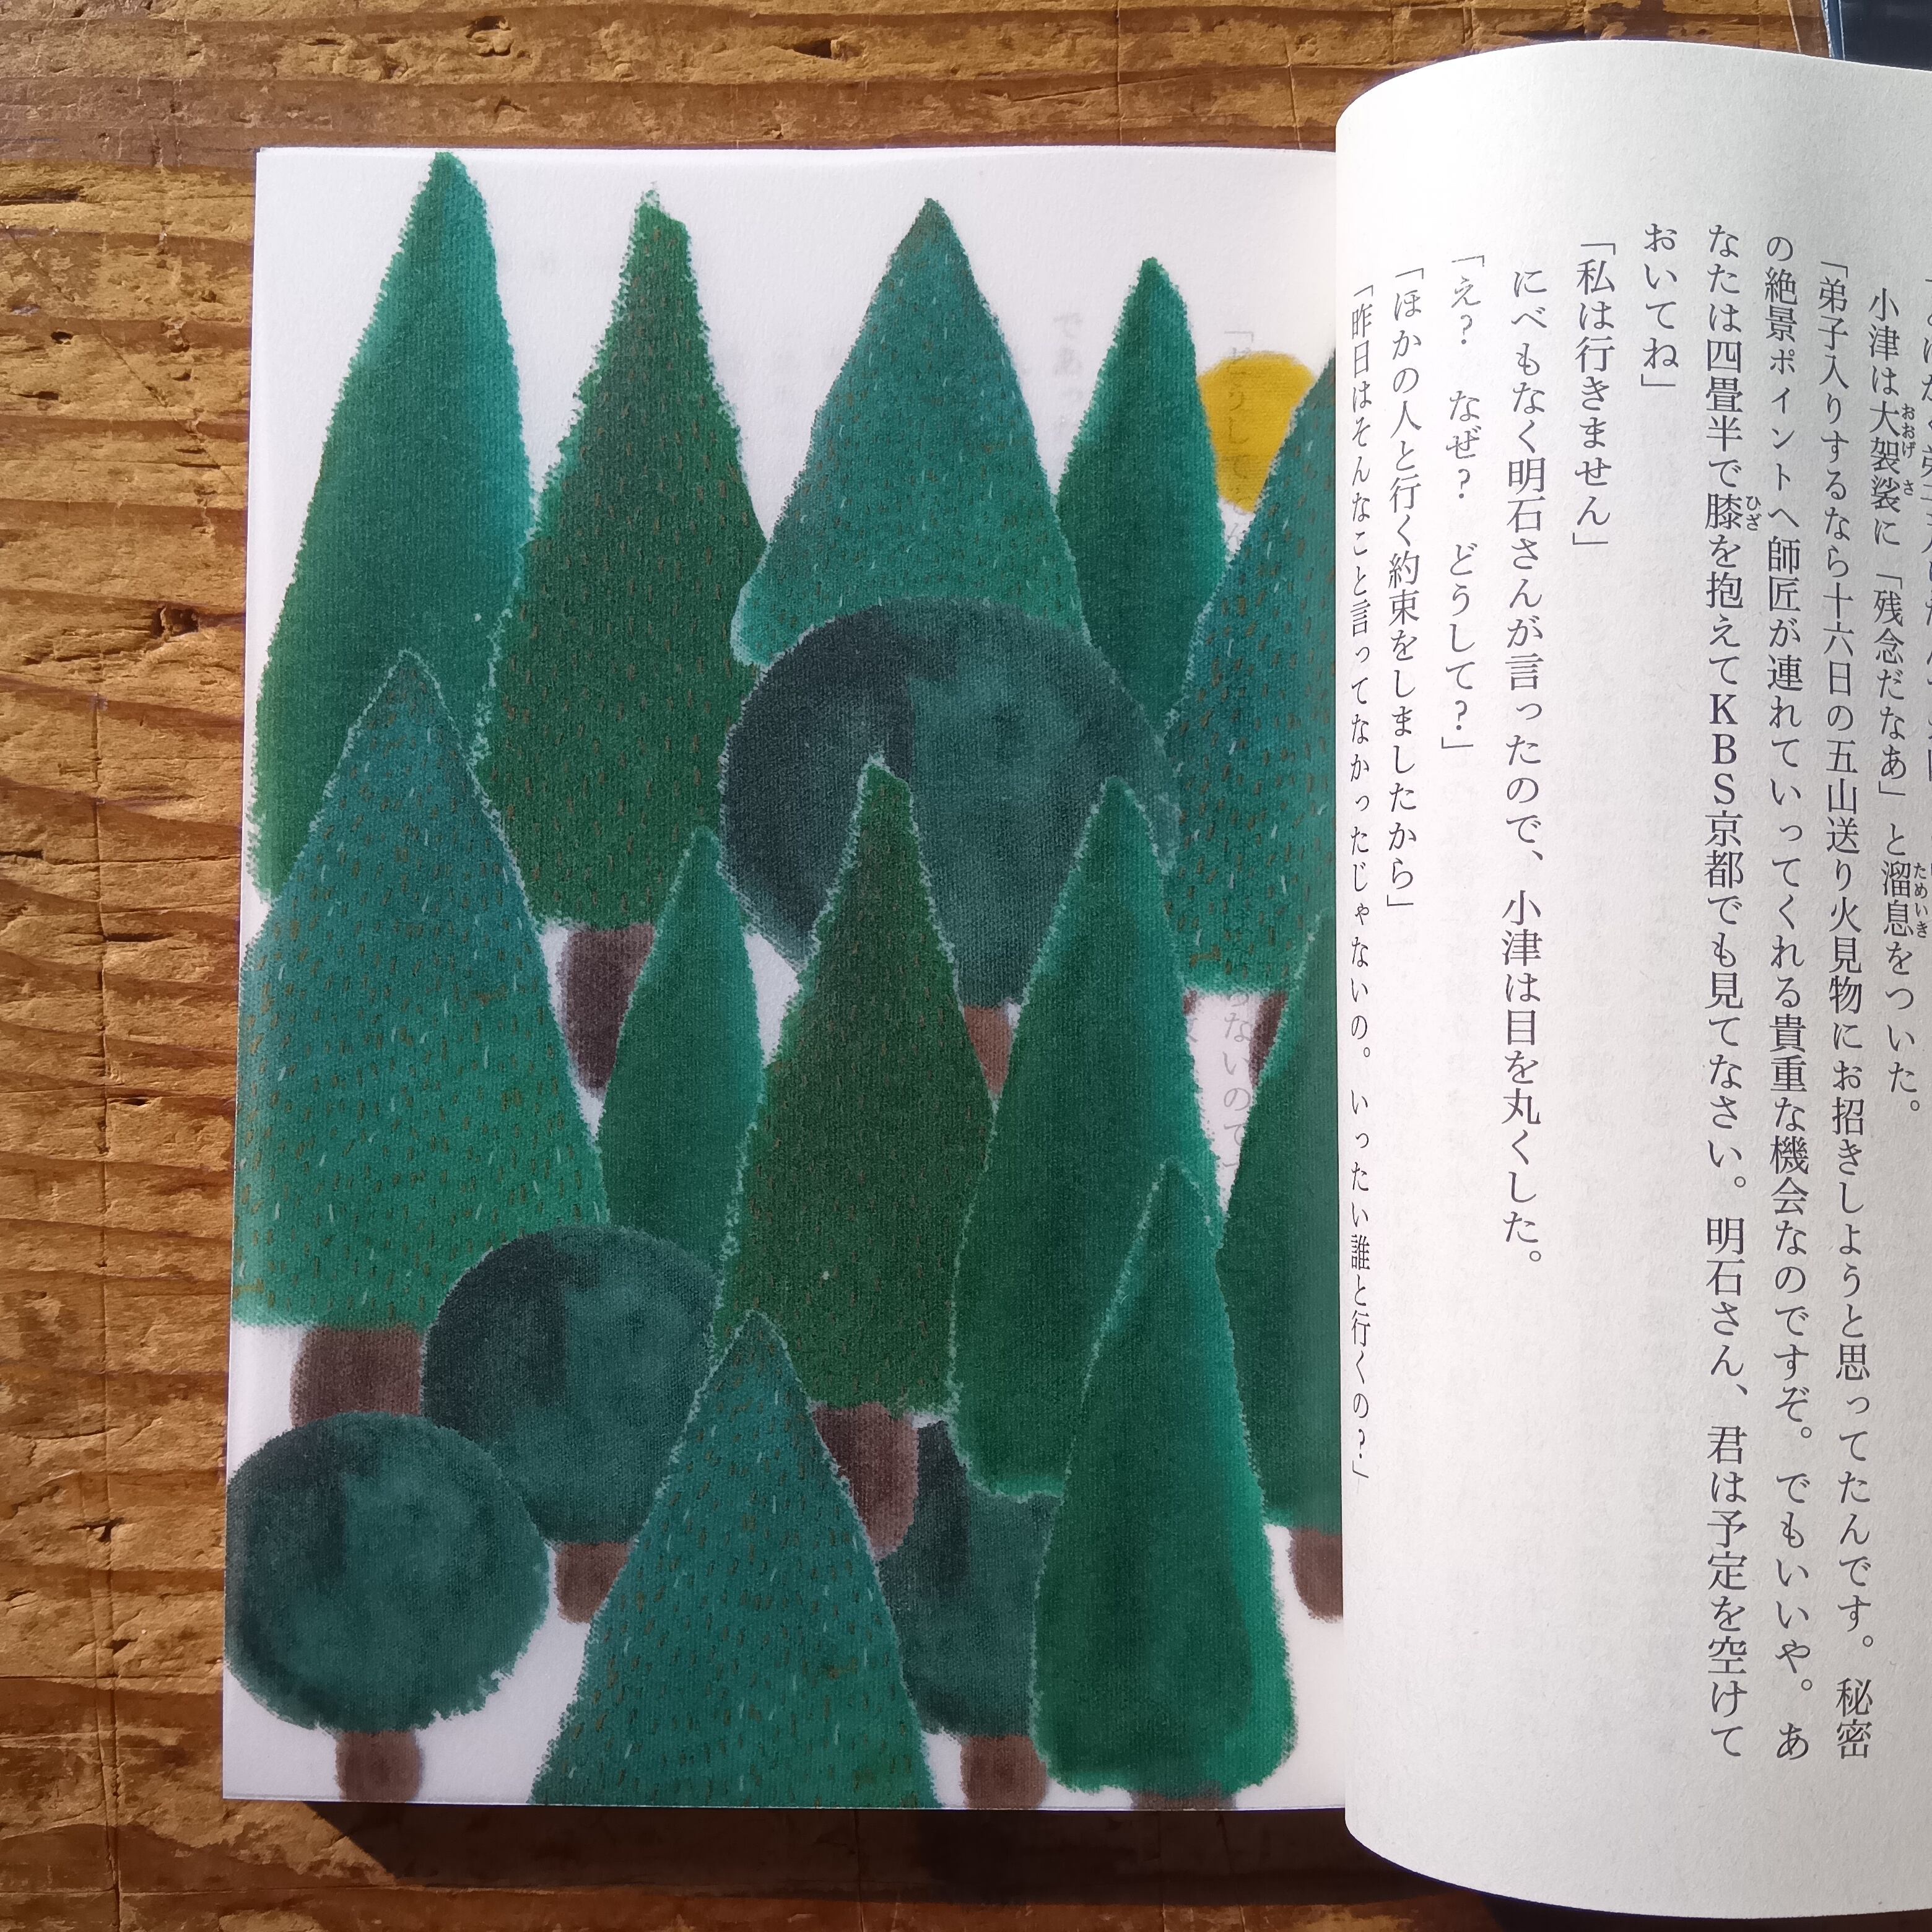 小津は大袈裟に「残念だなあ」と溜息をついた。
「弟子入りするなら十六日の五山送り火見物にお招きしようと思ってたんです。秘密
の絶景ポイントへ師匠が連れていってくれる貴重な機会なのですぞ。でもいいや。あ
なたは四畳半で膝を抱えてKBS京都でも見てなさい。明石さん、君は予定を空けて
おいてね」
「私は行きません」
にべもなく明石さんが言ったので、小津は目を丸くした。
「え？　なぜ？　どうして？」
「ほかの人と行く約束をしましたから」
「昨日はそんなこと言ってなかったじゃないの。いったい誰と行くの？」